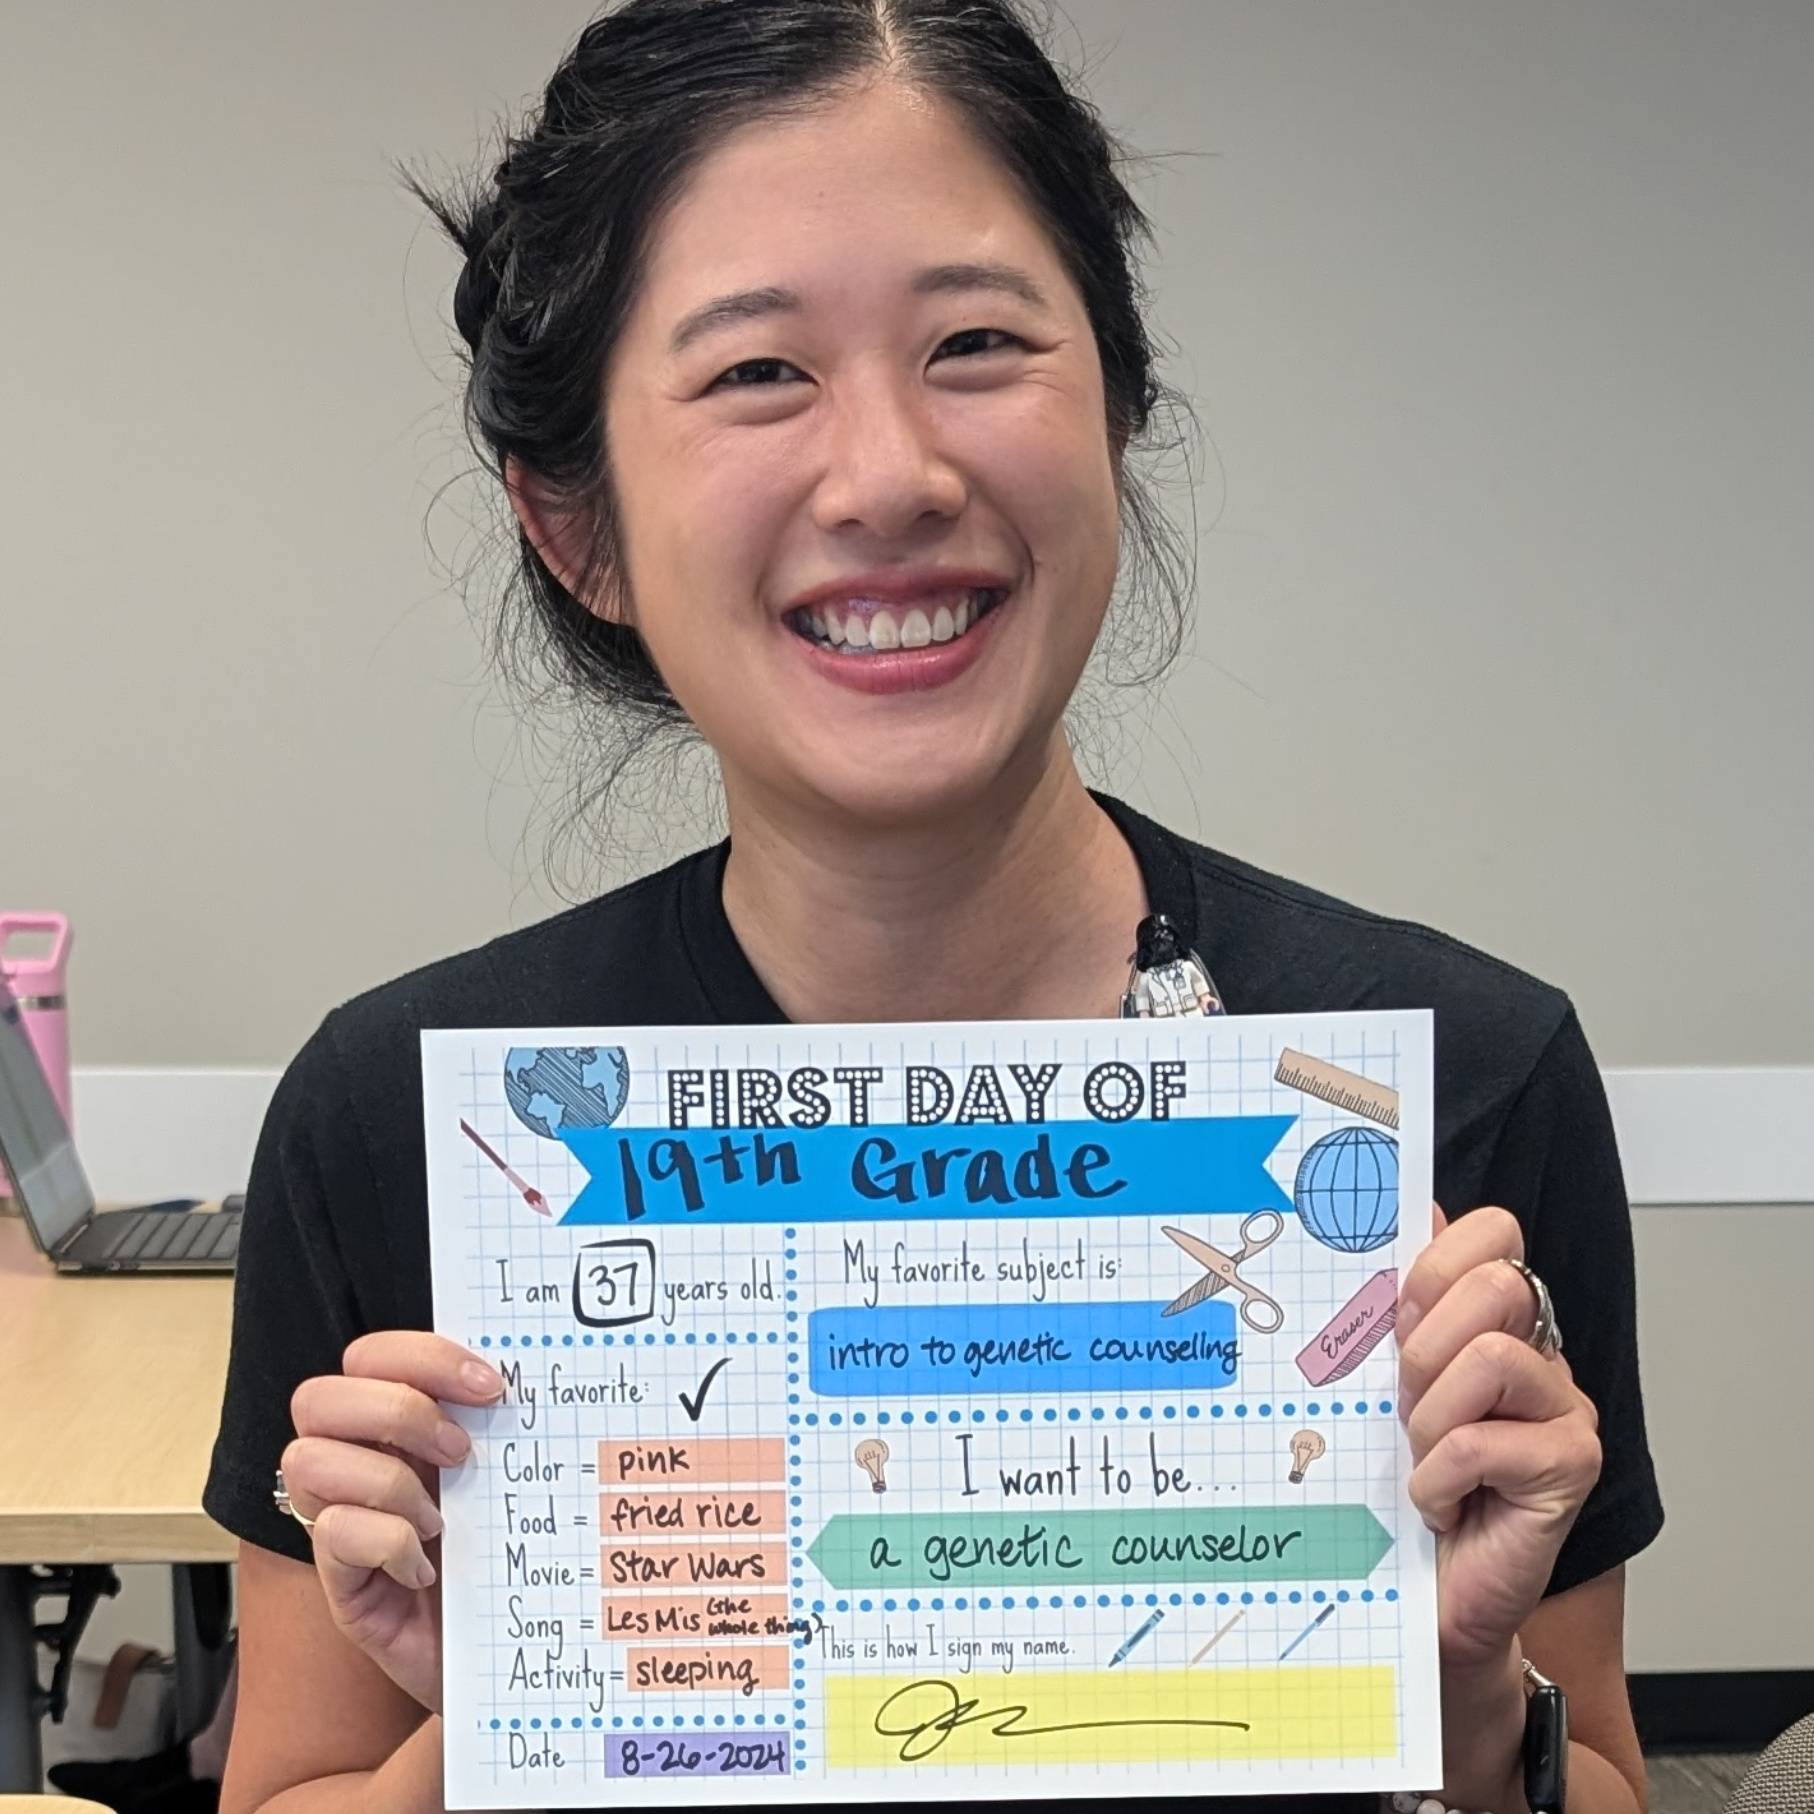 FIRST DAY OF
19th Grade
I am 37 years old.
My favorite:
Color = pink
Food = fried rice
Movie = Star Wars
Song = Les Mis (the whole thing)
Activity = sleeping
Date 8-26-2024
My favorite subject is:
intro to genetic counseling
Eraser
I want to be...
a genetic counselor
This is how I sign my name.